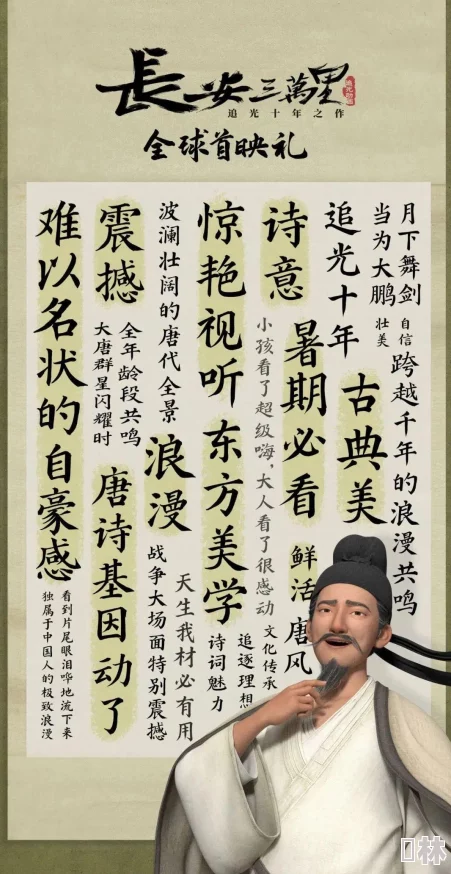 長安三萬里
追光动画
追光十年之作
全球首映礼
月下舞剑
当为大鹏
自信
壮美
跨越千年的浪漫共鸣
追光十年
古典美
诗意
暑期必看
鲜活唐风
小孩看了超级嗨,大人看了很感动
文化传承
追逐理想
诗词魅力
惊艳视听
东方美学
波澜壮阔的唐代全景
浪漫
天生我材必有用
战争大场面特别震撼
震撼
全年龄段共鸣
大唐群星闪耀时
唐诗基因动了
难以名状的自豪感
看到片尾眼泪哗地流下来
独属于中国人的极致浪漫
林